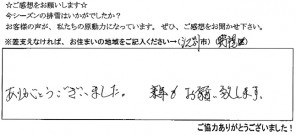 ☆ご感想をお願いします☆
今シーズンの排雪はいかがでしたか?
お客様の声が、私たちの原動力になっています。ぜひ、ご感想をお聞かせ下さい。
※差支えなければ、お住まいの地域をご記入くださいー(江別市 野幌区)
ありがとうございました。 来季もお願い致します。
ご協力ありがとうございました!